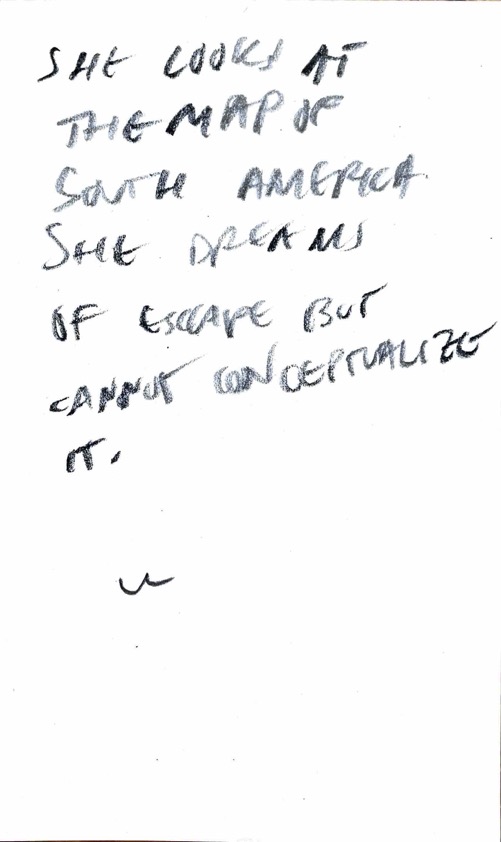 SHE LOOKS AT
THE MAP OF
SOUTH AMERICA.
SHE DREAMS
OF ESCAPE BUT
CANNOT CONCEPTUALIZE
IT.